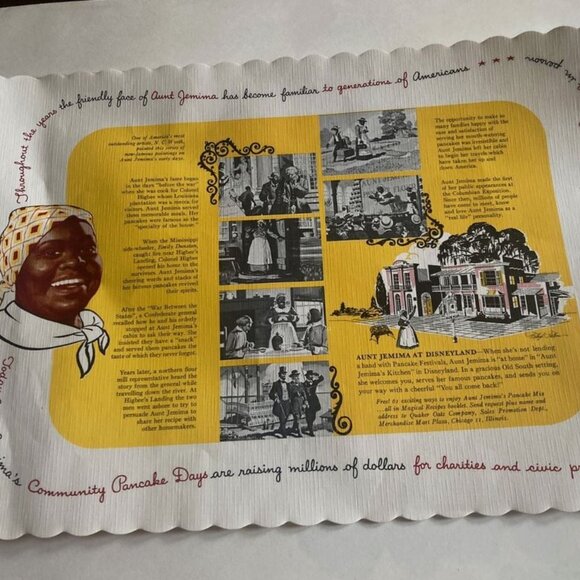 Throughout the years the friendly face of Aunt Jemima has become familiar to generations of Americans ★ ★ ★
person.
One of America's most
outstanding artists, N. C. Wyeth,
painted this series of
now-famous paintings on
Aunt Jemima's early days.
Aunt Jemima's fame began
in the days "before the war"
when she was cook for Colonel
Higbee whose Louisiana
plantation was a mecca for
visitors. Aunt Jemima served
them memorable meals. Her
pancakes were famous as the
"specialty of the house".
When the Mississippi
side-wheeler, Emily Dunston,
caught fire near Higbee's
Landing, Colonel Higbee
opened his home to the
survivors. Aunt Jemima's
cheering words and stacks of
her famous pancakes revived
their spirits.
After the "War Between the
States", a Confederate general
recalled how he and his orderly
stopped at Aunt Jemima's
cabin to ask their way. She
insisted they have a "snack"
and served them pancakes the
taste of which they never forgot.
Years later, a northern flour
mill representative heard the
story from the general while
travelling down the river. At
Higbee's Landing the two
men went ashore to try to
persuade Aunt Jemima to
share her recipe with
other homemakers.
The opportunity to make so
many families happy with the
ease and satisfaction of
serving her mouth-watering
pancakes was irresistible and
Aunt Jemima left her cabin
to begin her travels which
have taken her up and
down America.
Aunt Jemima made the first
of her public appearances at
the Columbian Exposition.
Since then, millions of people
have come to meet, know
and love Aunt Jemima as a
"real life" personality.
AUNT JEMIMA AT DISNEYLAND—When she's not lending
a hand with Pancake Festivals, Aunt Jemima is "at home" in "Aunt
Jemima's Kitchen" in Disneyland. In a gracious Old South setting,
she welcomes you, serves her famous pancakes, and sends you on
your way with a cheerful "You all come back!"
Free! 20 exciting ways to enjoy Aunt Jemima's Pancake Mix
all in Magical Recipes booklet. Send request plus name and
address to Quaker Oats Company, Sales Promotion Dept.,
Merchandise Mart Plaza, Chicago 54, Illinois.
Community Pancake Days are raising millions of dollars for charities and civic